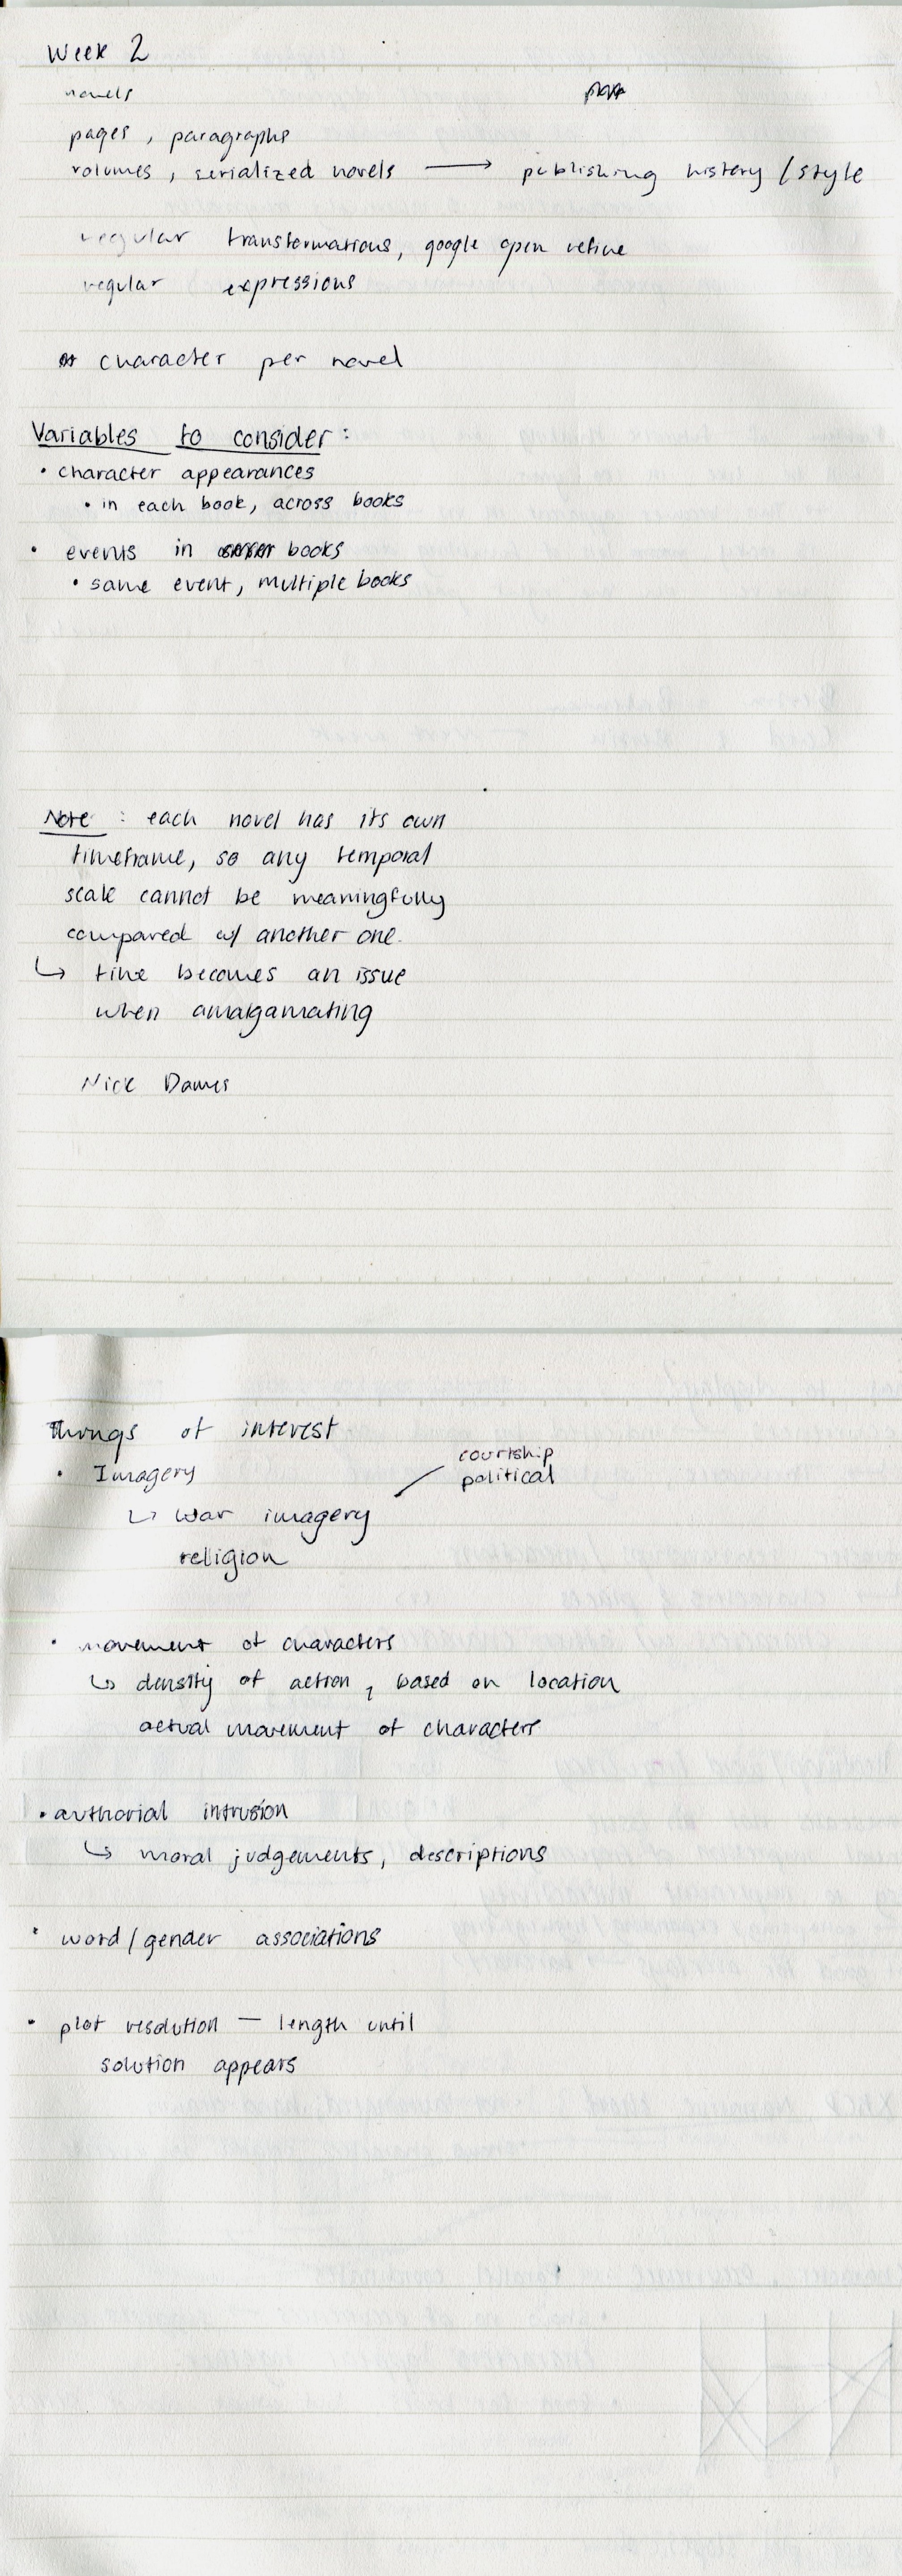 Week 2
novels
pages, paragraphs
volumes, serialized novels → publishing history / style
regular transformations, google open refine
regular expressions
character per novel
Variables to consider:
• character appearances
• in each book, across books
• events in books
• same event, multiple books
Note: each novel has its own
timeframe, so any temporal
scale cannot be meaningfully
compared w/ another one.
↳ time becomes an issue
when amalgamating
Nick Dames
Things of interest
courtship
• Imagery
political
↳ war imagery
religion
• movement of characters
↳ density of action, based on location
actual movement of characters
• authorial intrusion
↳ moral judgements, descriptions
• word/gender associations
• plot resolution — length until
solution appears